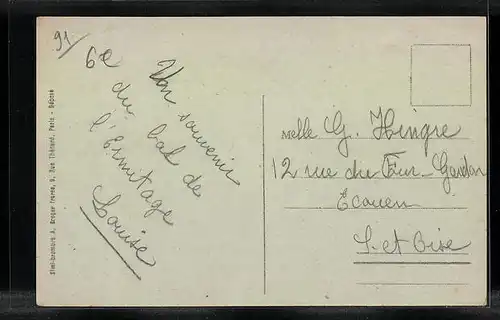 91/
6e
Un souvenir
du bal de
l'Ermitage
Louise
Melle G. Hingre
12 rue du Four-Gardon
Ecouen
S. et Oise
A. Breger Frères, 9, Rue Thénard, Paris - Déposé